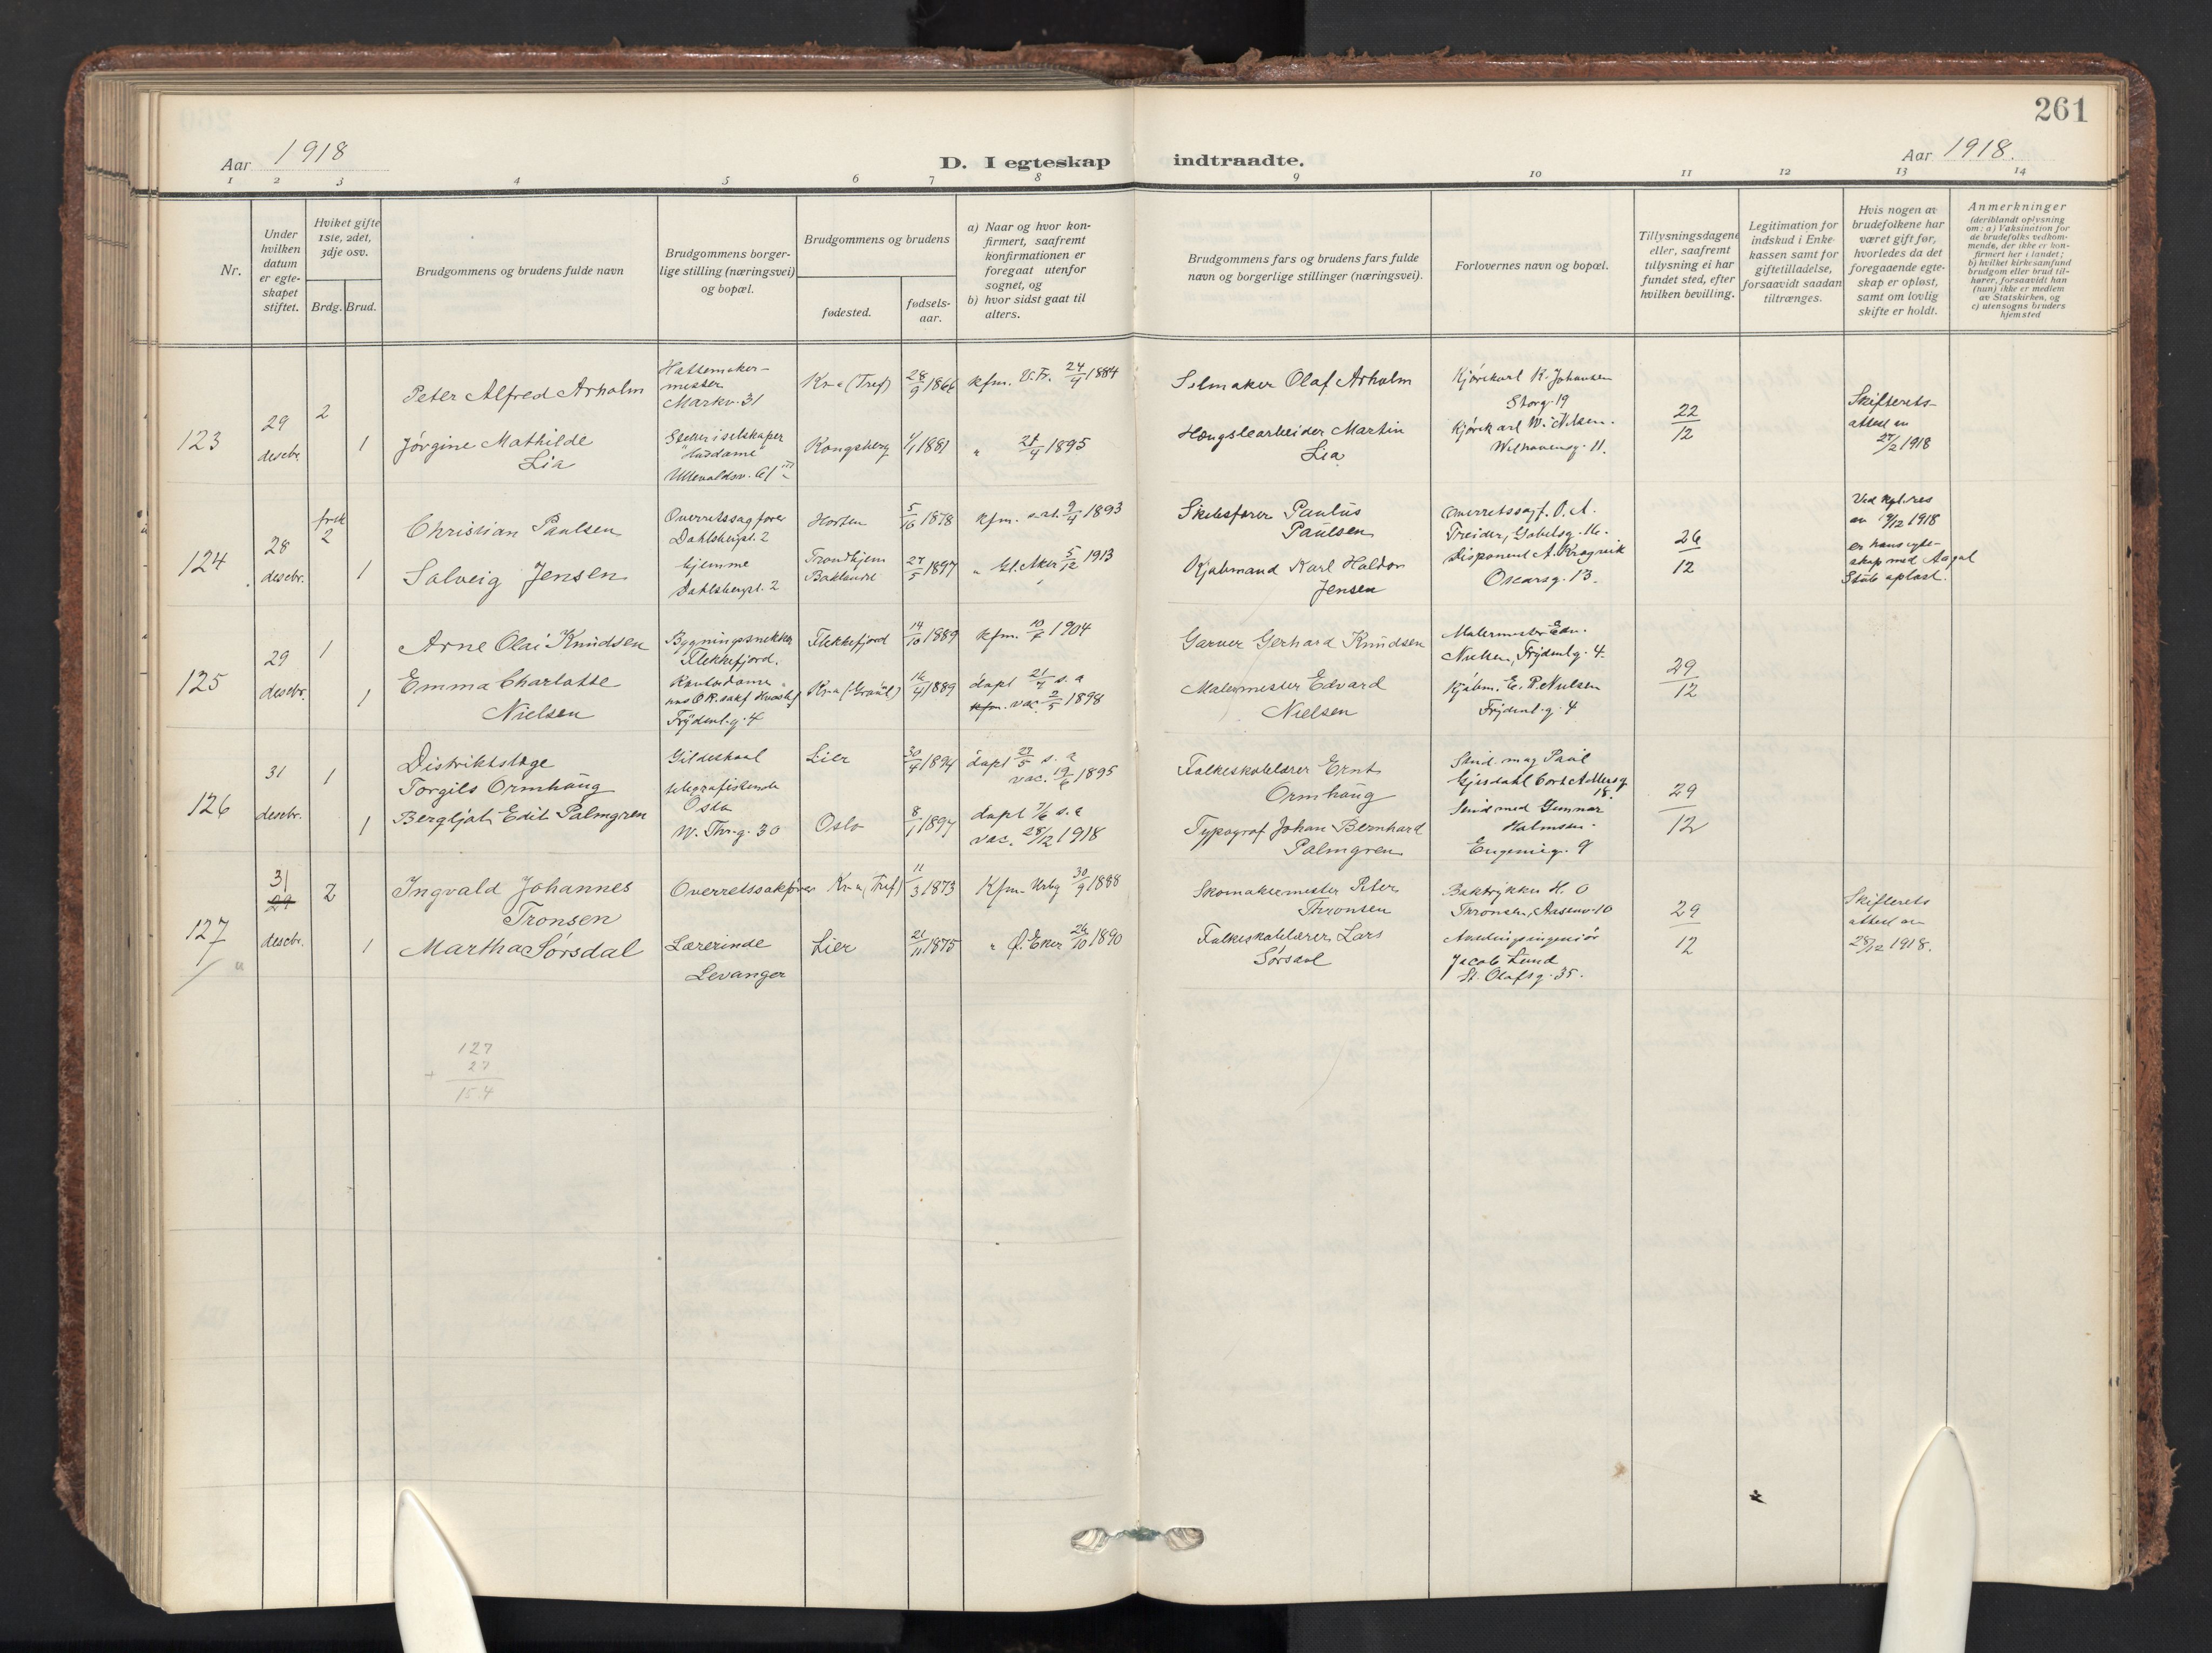 261
Aar 1918
D. I egteskap indtraadte.
Aar 1918.
1 2 3 4 5 6 7 8 9 10 11 12 13 14
Nr.
Under
hvilken
datum
er egte-
skapet
stiftet.
Hviket gifte
1ste, 2det,
3dje osv.
Brdg. Brud.
Brudgommens og brudens fulde navn
Brudgommens borger-
lige stilling (næringsvei)
og bopæl.
Brudgommens og brudens
fødested.
fødsels-
aar.
a) Naar og hvor kon-
firmert, saafremt
konfirmationen er
foregaat utenfor
sognet, og
b) hvor sidst gaat til
alters.
Brudgommens fars og brudens fars fulde
navn og borgerlige stillinger (næringsvei).
Forlovernes navn og bopæl.
Tillysningsdagene
eller, saafremt
tillysning ei har
fundet sted, efter
hvilken bevilling.
Legitimation for
indskud i Enke-
kassen samt for
giftetilladelse,
forsaavidt saadan
tiltrænges.
Hvis nogen av
brudefolkene har
været gift før,
hvorledes da det
foregaaende egte-
skap er opløst,
samt om lovlig
skifte er holdt.
Anmerkninger
(deriblandt oplysning
om: a) Vaksination for
de brudefolks vedkom-
mende, der ikke er kon-
firmert her i landet;
b) hvilket kirkesamfund
brudgom eller brud til-
hører, forsaavidt han
(hun) ikke er medlem
av Statskirken, og
c) utensogns bruders
hjemsted
123
29
desebr.
2
1
Peter Alfred Arholm
Jørgine Mathilde
Lia
Hattemaker-
mester
Markv. 31
Husdame
Ullevoldsv. 61 III
Kr-a (Tref)
Kongsberg
28/9 1866
1/1 1881
kfm. V. Fr. 24/4 1884
" 21/4 1895
Selmaker Olaf Arholm
Hængslearbeider Martin
Lia
Kjørekarl K. Johansen
Storg. 19
Kjørekarl W. Nilsen.
Welhavensg. 11.
22
12
Skifterets-
attest av
27/2 1918
124
28
desebr.
frsk
2
1
Christian Paulsen
Solveig Jensen
Overretssagfører
Dahlsbergst. 2
hjemme
Dahlsbergst. 2
Horten
Trondhjem
Baklandet
5/10 1878
27/5 1897
kfm. s. st. 9/4 1893
" Gl. Aker 5/12 1913
Skibsfører Paulus
Paulsen
Kjøbmand Karl Haldor
Jensen
Overretssagf. O. A.
Treider, Gabelsg. 16.
Disponent A. Kragvik
Oscarsg. 13.
26
12
Ved kgl. res
av 9/12 1918
er hans egte-
skap med Aagot
Stub opløst.
125
29
desebr.
1
1
Arne Olai Knudsen
Emma Charlotte
Nielsen
Bygningssnekker
Flekkefjord.
Kontordame
Frydenl. g. 4
Flekkefjord
Kr-a (Grønl)
14/10 1889
16/4 1889
kfm. 10/7 1904
døpt 21/4 s. a
vac. 2/5 1898
Garver Gerhard Knudsen
Malermester Edvard
Nielsen
Malermester Edv.
Nielsen, Frydenl. g. 4.
Kjøbm. E. P. Nielsen
Frydenl. g. 4
29
12
126
31
desebr.
1
1
Distriktslæge
Torgils Ormhaug
Bergljot Edit Palmgren
Gildeskaal
telegrafistinde
Oslo
W. Thr. g. 30
Lier
Oslo
30/4 1894
8/1 1897
døpt 27/5 s. a
vac. 19/6 1895
døpt 7/6 s. a
vac. 28/12 1918
Folkeskolelærer Ernt
Ormhaug
Typograf Johan Bernhard
Palmgren
Stud. mag Paul
Gjesdahl Cort Adlersg
18.
Stud med Gunnar
Holmsen.
Eugenieg. 9
29
12
127
31
29
desebr.
2
1
Ingvald Johannes
Tronsen
Martha Sørsdal
Overretssakfører
Lærerinde
Levanger
Kr-a (Tref)
Lier
11/3 1873
21/11 1875
Kfm. Urbg 30/9 1888
" Ø. Eker 26/10 1890
Skomakermester Peter
Thronsen
Folkeskolelærer Lars
Sørsdal
Boktrykker H. O
Thronsen, Aasenv. 10
Avdelingsingeniør
Jacob Lund
St. Olafsg. 35.
29
12
Skifterets
attest av
28/12 1918.
127
+ 27
154